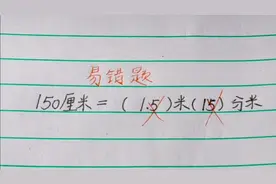 易错题
150厘米=(1.5)米(15)分米